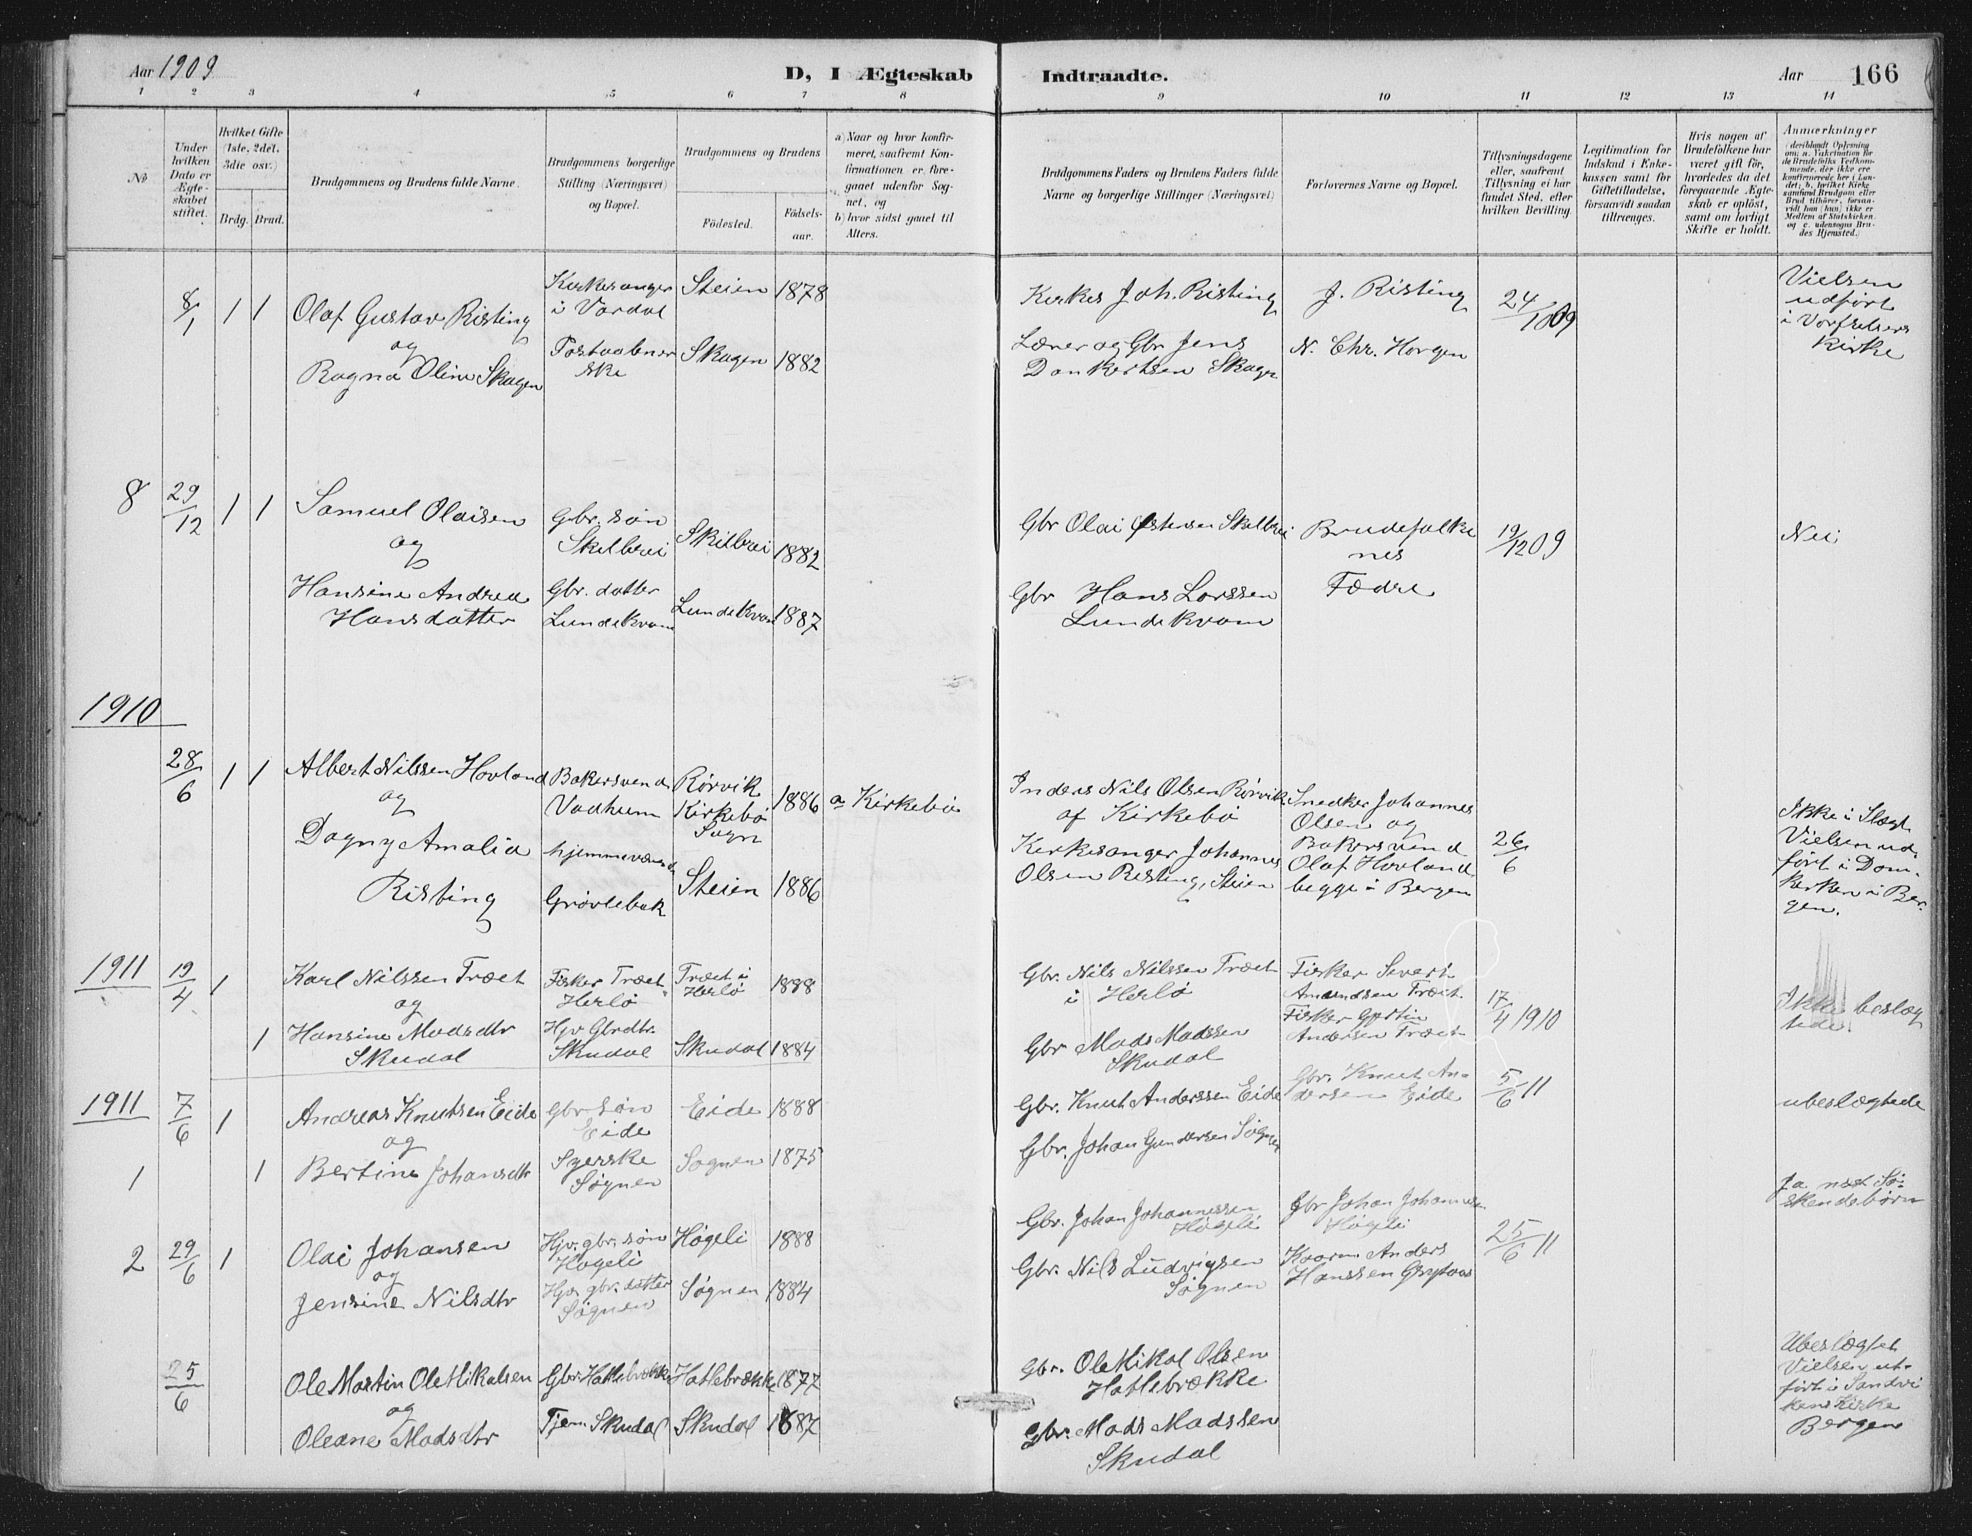 Aar 1909
D, I Ægteskab
Indtraadte.
Aar
166
1 2 3 4 5 6 7 8 9 10 11 12 13 14
No
Under hvilken Dato er Ægteskabet stiftet.
Hvilket Gifte (1ste, 2det, 3die osv.)
Brdg. Brud.
Brudgommens og Brudens fulde Navne.
Brudgommens borgerlige Stilling (Næringsvei) og Bopæl.
Brudgommens og Brudens
Fødested.
Fødselsaar.
a) Naar og hvor konfirmeret, saafremt Konfirmationen er foregaaet udenfor Sognet, og
b) hvor sidst gaaet til Alters.
Brudgommens Faders og Brudens Faders fulde Navne og borgerlige Stillinger (Næringsvei)
Forlovernes Navne og Bopæl.
Tillysningsdagene eller, saafremt Tillysning ei har fundet Sted, efter hvilken Bevilling.
Legitimation for Indskud i Enkekassen samt for Giftetilladelse, forsaavidt saadan tiltrænges.
Hvis nogen af Brudefolkene har været gift før, hvorledes da det foregaaende Ægteskab er opløst, samt om lovligt Skifte er holdt.
Anmærkninger
8/1 1 1
Olaf Gustav Risting
og
Ragna Oline Skagen
Kirkesanger
i Vardal
Postaabner
ske
Steien 1878
Skagen 1882
Kirkes Joh. Risting
Lærer og Gbr Jens
Dankertsen Skagen
J. Risting
N. Chr. Horgen
24/1 09
Vielsen
udført
i Vorfrelsers
Kirke
8 29/12 1 1
Samuel Olaisen
og
Hansine Andrea
Hansdatter
Gbr. søn
Skilbrei
Gbr. datter
Lundekvam
Skilbrei 1882
Lundekvam 1887
Gbr Olai Østensen Skilbrei
Gbr Hans Larssen
Lundekvam
Brudefolke
nes
Fædre
19/12 09
Nei
1910
28/6 1 1
Albert Nilssen Hovland
og
Dagny Amalia
Risting
Bakersvend
Vadheim
hjemmeværend
Grøvlebak
Rørvik
Kirkebø
Sogn 1886
Steien 1886
a Kirkebø
Inders Nils Olsen Rørvik
af Kirkebø
Kirkesanger Johannes
Olsen Risting, Steien
Snedker Johannes
Olsen og
Bakersvend
Olaf Hovland
begge i Bergen
26/6
Ikke i Slægt
Vielsen ud-
ført i Dom-
kirken i Ber-
gen.
1911 19/4 1
Karl Nilssen Træet
og
1 Hansine Madsdtr
Skudal
Fisker Træet
Herlø
Hjv Gbrdtr.
Skudal
Træet i
Herlø 1888
Skudal 1884
Gbr. Nils Nilssen Træet
i Herlø
Gbr Mads Madssen
Skudal
Fisker Sivert
Amundsen Træet
Fisker
Andersen Træet
17/4 1910
Ikke beslæg
tede
1911 7/6 1
Andreas Knutsen Eide
og
1 1 Bertine Johansdtr
Gbr søn
Eide
Syerske
Søgnen
Eide 1888
Søgnen 1875
Gbr. Knut Anderssen Eide
Gbr. Johan Gundersen Søgnen
Gbr. Knut An-
dersen Eide
5/6 11
ubeslægtede
2 29/6 1
Olai Johansen
og
Jensine Nilsdtr
Hjv. gbr. søn
Høgeli
Hjv. gbr. datter
Søgnen
Høgeli 1888
Søgnen 1884
Gbr. Johan Johannessen
Høgeli
Gbr. Nils Ludvigsen
Søgnen
Gbr Johan Johannesen
Høgeli
Kaarm. Anders
Hanssen Grytaas
25/6 11
Ja næst Sø-
skendebørn
25/6
Ole Martin Ole Mikalsen
og
Oleane Madsdtr
Gbr Hatlebrække
Tjen. Skudal
Hatlebrække 1877
Skudal 1887
Gbr. Ole Mikal Olsen
Hatlebrække
Gbr. Mads Madssen
Skudal
Ubeslægtet
Vielsen ut-
ført i Sandvi
kens Kirke
Bergen